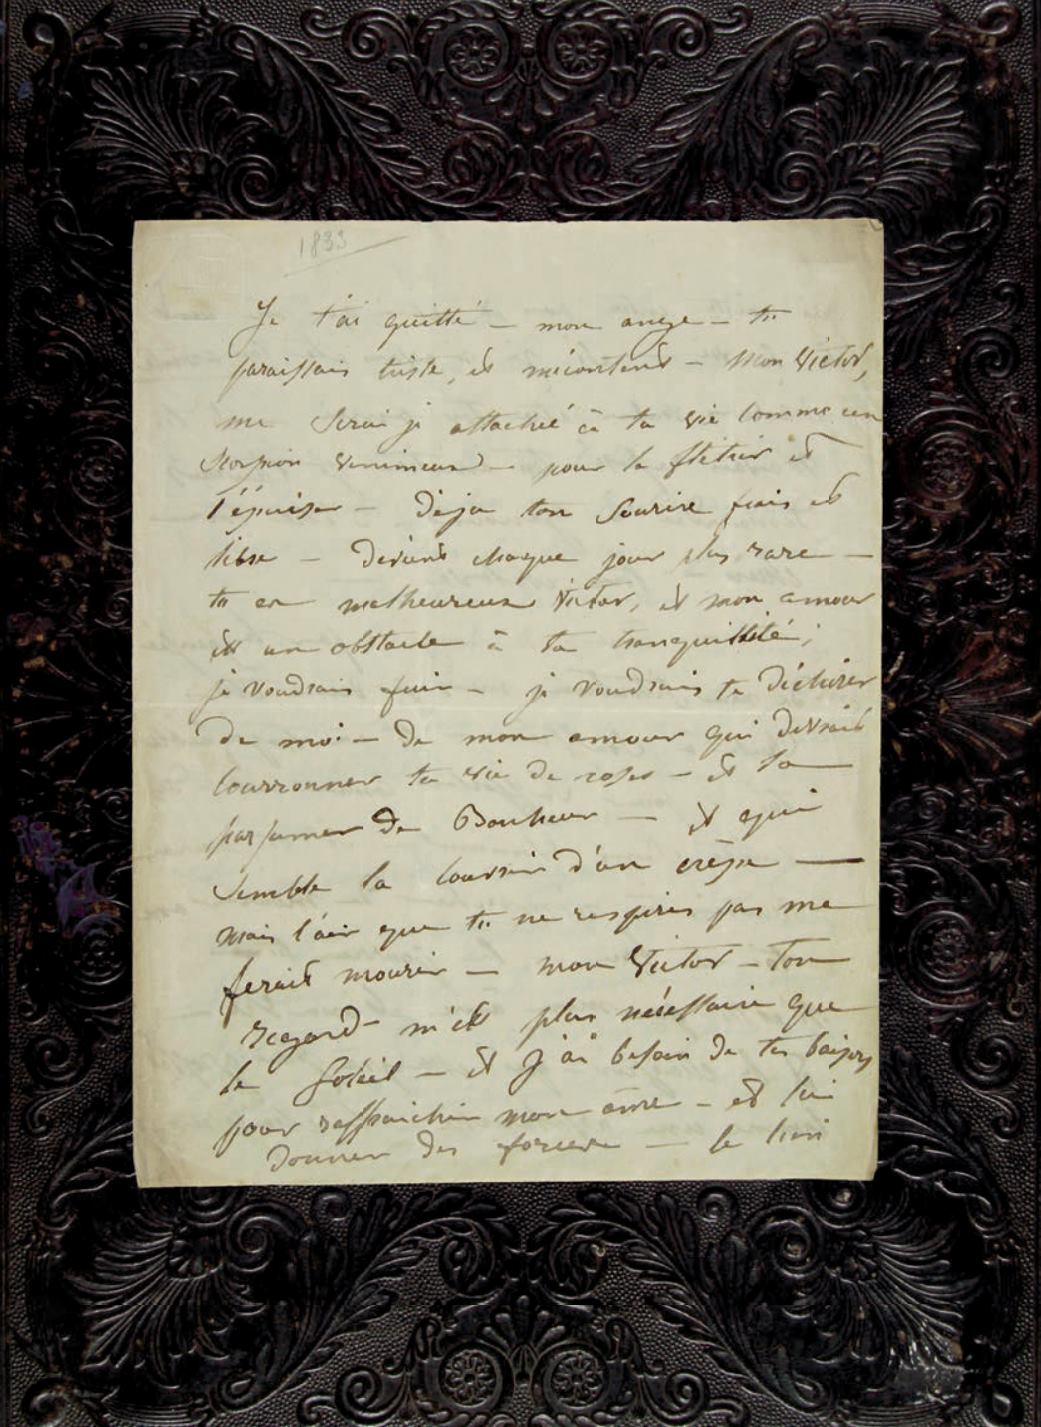 1833
Je t'ai quitté — mon ange — tu
paraissais triste, et mécontent — Mon Victor,
me serai je attaché à ta vie comme un
scorpion venimeux — pour la flétrir et
l'épuiser — Déja ton sourire frais et
libre — devient chaque jour plus rare —
tu es malheureux Victor, et mon amour
est un obstacle à ta tranquillité;
je voudrais fuir — je voudrais te
de moi — de mon amour qui devrait
courronner ta vie de roses — et la
parfumer de Bonheur — et qui
semble la couvrir d'un crêpe —
mais l'air que tu ne respires pas me
ferait mourir — mon Victor — Ton
regard m'est plus nécessaire que
le soleil — et j'ai besoin de tes baisers
pour raffraichir mon âme — et lui
donner des forces — le